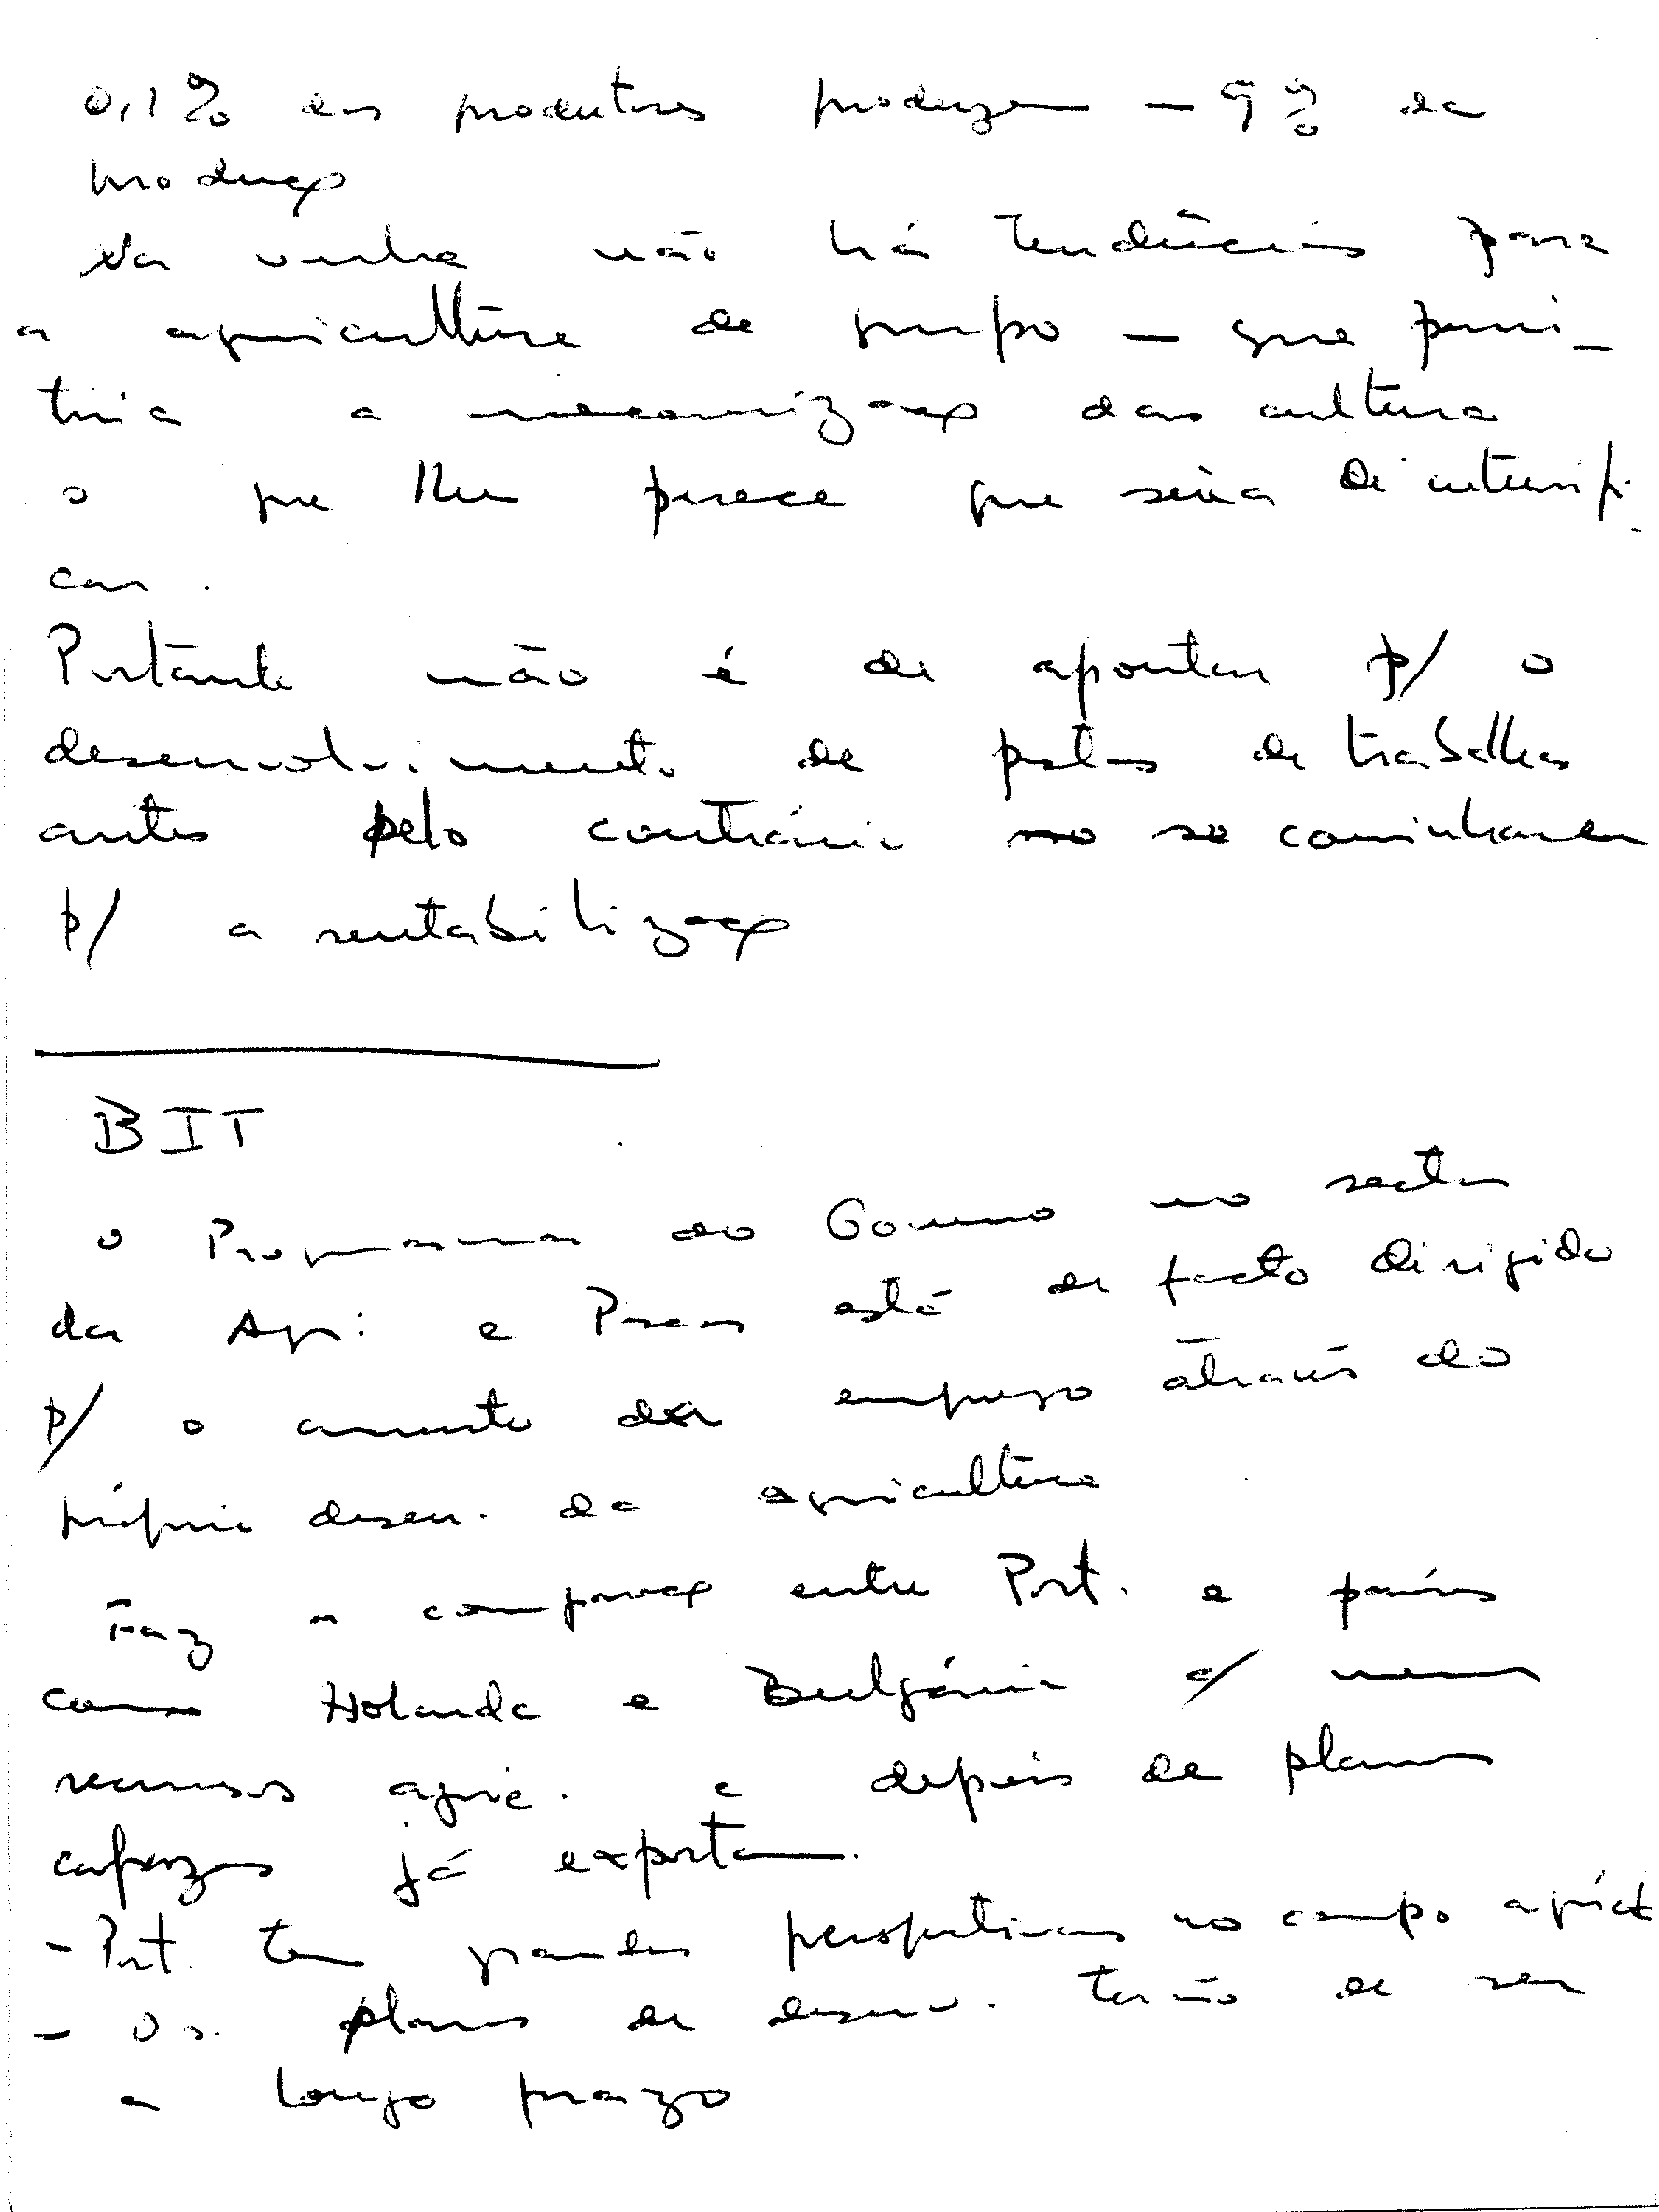 0,1% dos produtores produzem – 9% da
produção
Na vinha não há tendências para
a agricultura de grupo – que permi-
tiria a mecanização das culturas
o que lhe parece que seria de intensifi-
car.
Portanto não é de apontar p/ o
desenvolvimento de postos de trabalhos
antes pelo contrário se caminharem
p/ a rentabilização
BIT
o Programa do Governo no sector
da Agri. e Pescas está de facto dirigido
p/ o aumento de emprego através do
próprio desen. da agricultura
Faz a comparação entre Port. e países
como Holanda e Bulgária c/ menos
recursos agríc. e depois de planos
capazes já exportam.
- Port. tem grandes perspectivas no campo agríc
- Os planos de desenv. terão de ser
a longo prazo